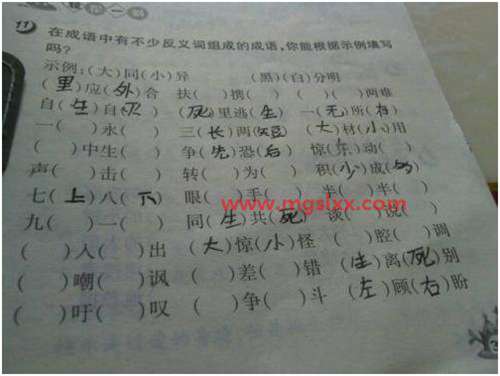 11 在成语中有不少反义词组成的成语,你能根据示例填写
吗?
示例:(大)同(小)异 (黑)(白)分明
(里)应(外)合 扶( )携( ) ( )( )两难
自(生)自(灭) (死)里逃(生) 一(无)所(有)
一( )永( ) 三(长)两(短) (大)材(小)用
( )中生( ) 争(先)恐(后) 惊( )动( )
声( )击( ) 转( )为( ) 积(小)成( )
七(上)八(下) 眼( )手( ) 半( )半( )
www.mgslxx.com
九( )一( ) 同(生)共(死) 谈( )说( )
( )入( )出 (大)惊(小)怪 ( )腔( )调
( )嘲( )讽 ( )差( )错 (生)离(死)别
( )吁( )叹 ( )争( )斗 (左)顾(右)盼